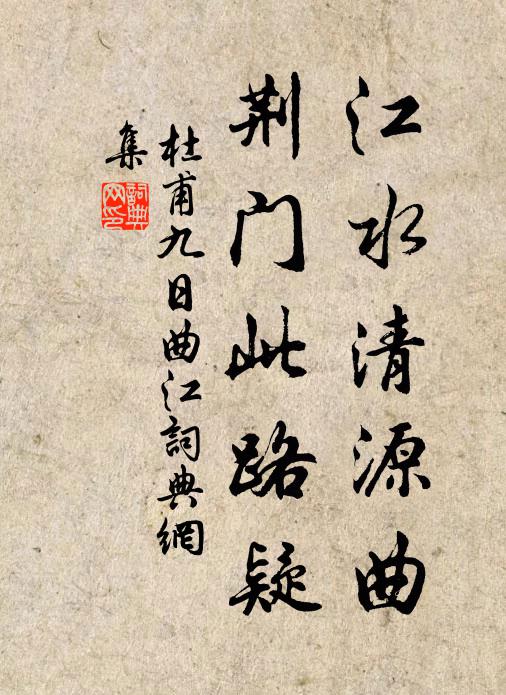 江水清源曲
荆门此路疑
杜甫九日曲江詞典網
集
詞典
网印